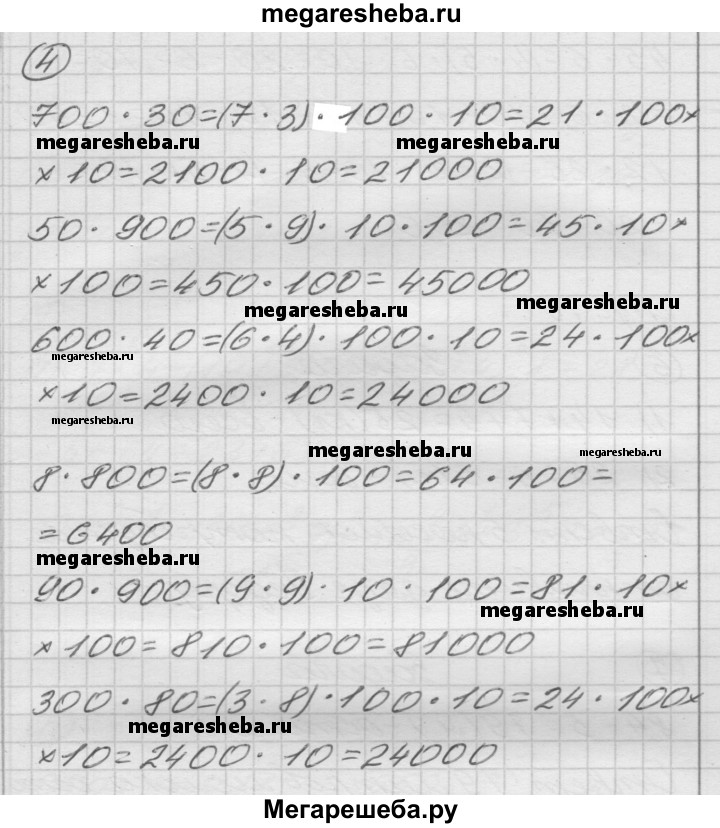 megaresheba.ru
4
700 · 30=(7 · 3) · 100 · 10=21 · 100×
megaresheba.ru megaresheba.ru
×10=2100 · 10=21000
50 · 900=(5 · 9) · 10 · 100=45 · 10×
×100=450 · 100=45000
megaresheba.ru megaresheba.ru
600 · 40=(6 · 4) · 100 · 10=24 · 100×
megaresheba.ru
×10=2400 · 10=24000
megaresheba.ru
megaresheba.ru megaresheba.ru
8 · 800=(8 · 8) · 100=64 · 100=
=6400
megaresheba.ru
90 · 900=(9 · 9) · 10 · 100=81 · 10×
megaresheba.ru
×100=810 · 100=81000
300 · 80=(3 · 8) · 100 · 10=24 · 100×
megaresheba.ru
×10=2400 · 10=24000
Мегарешеба.ру